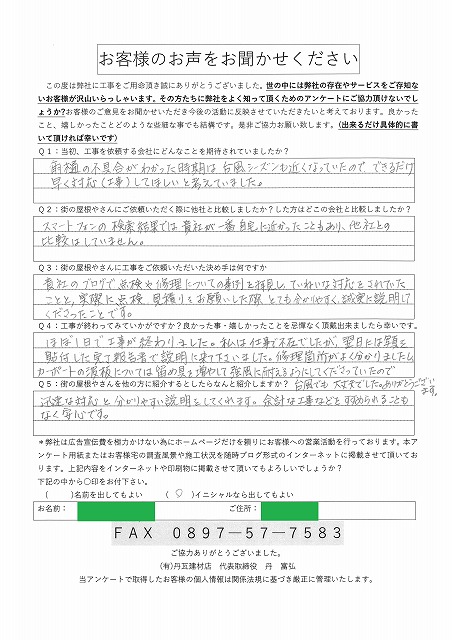 お客様のお声をお聞かせください
この度は弊社に工事をご用命頂き誠にありがとうございました。世の中には弊社の存在やサービスをご存知な
いお客様が沢山いらっしゃいます。その方たちに弊社をよく知って頂くためのアンケートにご協力頂けないでし
ょうか?お客様のご意見をお聞かせいただき今後の活動に反映させていただきたいと考えております。良かった
こと、嬉しかったことどのような些細な事でも結構です。是非ご協力お願い致します。(出来るだけ具体的に書
いて頂ければ幸いです)
Q１：当初、工事を依頼する会社にどんなことを期待されていましたか？
雨樋の不具合がわかった時期は台風シーズンも近くなっていたので できるだけ
早く対応(工事)してほしいと考えていました。
Q２：街の屋根やさんにご依頼いただく際に他社と比較しましたか？した方はどこの会社と比較しましたか？
スマートフォンの検索結果では貴社が一番自宅に近かったこともあり、他社との
比較はしていません。
Q３：街の屋根やさんに工事をご依頼いただいた決め手は何ですか
貴社のブログで点検や修理についての事例を拝見し、ていねいな対応をされていた
ことと、実際に点検、見積りをお願いした際、とても分かりやすく、誠実に説明して
くださったことです。
Q４：工事が終わってみていかがですか？良かった事・嬉しかったことを忌憚なく頂戴出来ましたら幸いです。
ほぼ1日で工事が終わりました。私は仕事で不在でしたが、翌日に写真を
貼付した完了報告書で説明に来て下さいました。修理箇所がよく分かりましたし、
カーポートの波板については留め具を増やして強風に耐えるようにしてくださっていたので
台風でも大丈夫でした。ありがとうござい
ます。
Q５：街の屋根やさんを他の方に紹介するとしたらなんと紹介しますか？
迅速な対応と分かりやすい説明をしてくれます。余計な工事などをすすめられることも
なく安心です。
＊弊社は広告宣伝費を極力かけない為にホームページだけを頼りにお客様への営業活動を行っております。本ア
ンケート用紙またはお客様宅の調査風景や施工状況を随時ブログ形式のインターネットに掲載させて頂いてお
ります。上記内容をインターネットや印刷物に掲載させて頂いてもよろしいでしょうか？
下記の中から〇印をお付下さい。
(　　)名前を出してもよい　(　○　)イニシャルなら出してもよい
お名前：　ご住所：
FAX 0897-57-7583
ご協力ありがとうございました。
(有)丹瓦建材店　代表取締役　丹　富弘
当アンケートで取得したお客様の個人情報は関係法規に基づき厳正に管理いたします。